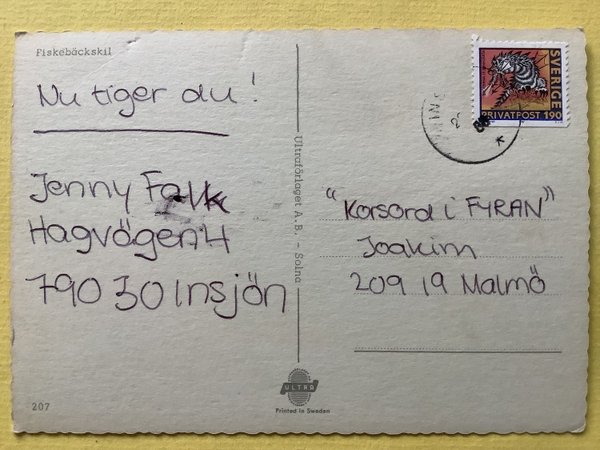 Fiskebäckskil
Nu tiger du!
Jenny Falk
Hagvägen 4
790 30 Insjön
207
Ultraförlaget A.B. - Solna
ULTRA
Printed in Sweden
SVERIGE
PRIVATPOST 190
"Korsord i FYRAN"
Joakim
209 19 Malmö